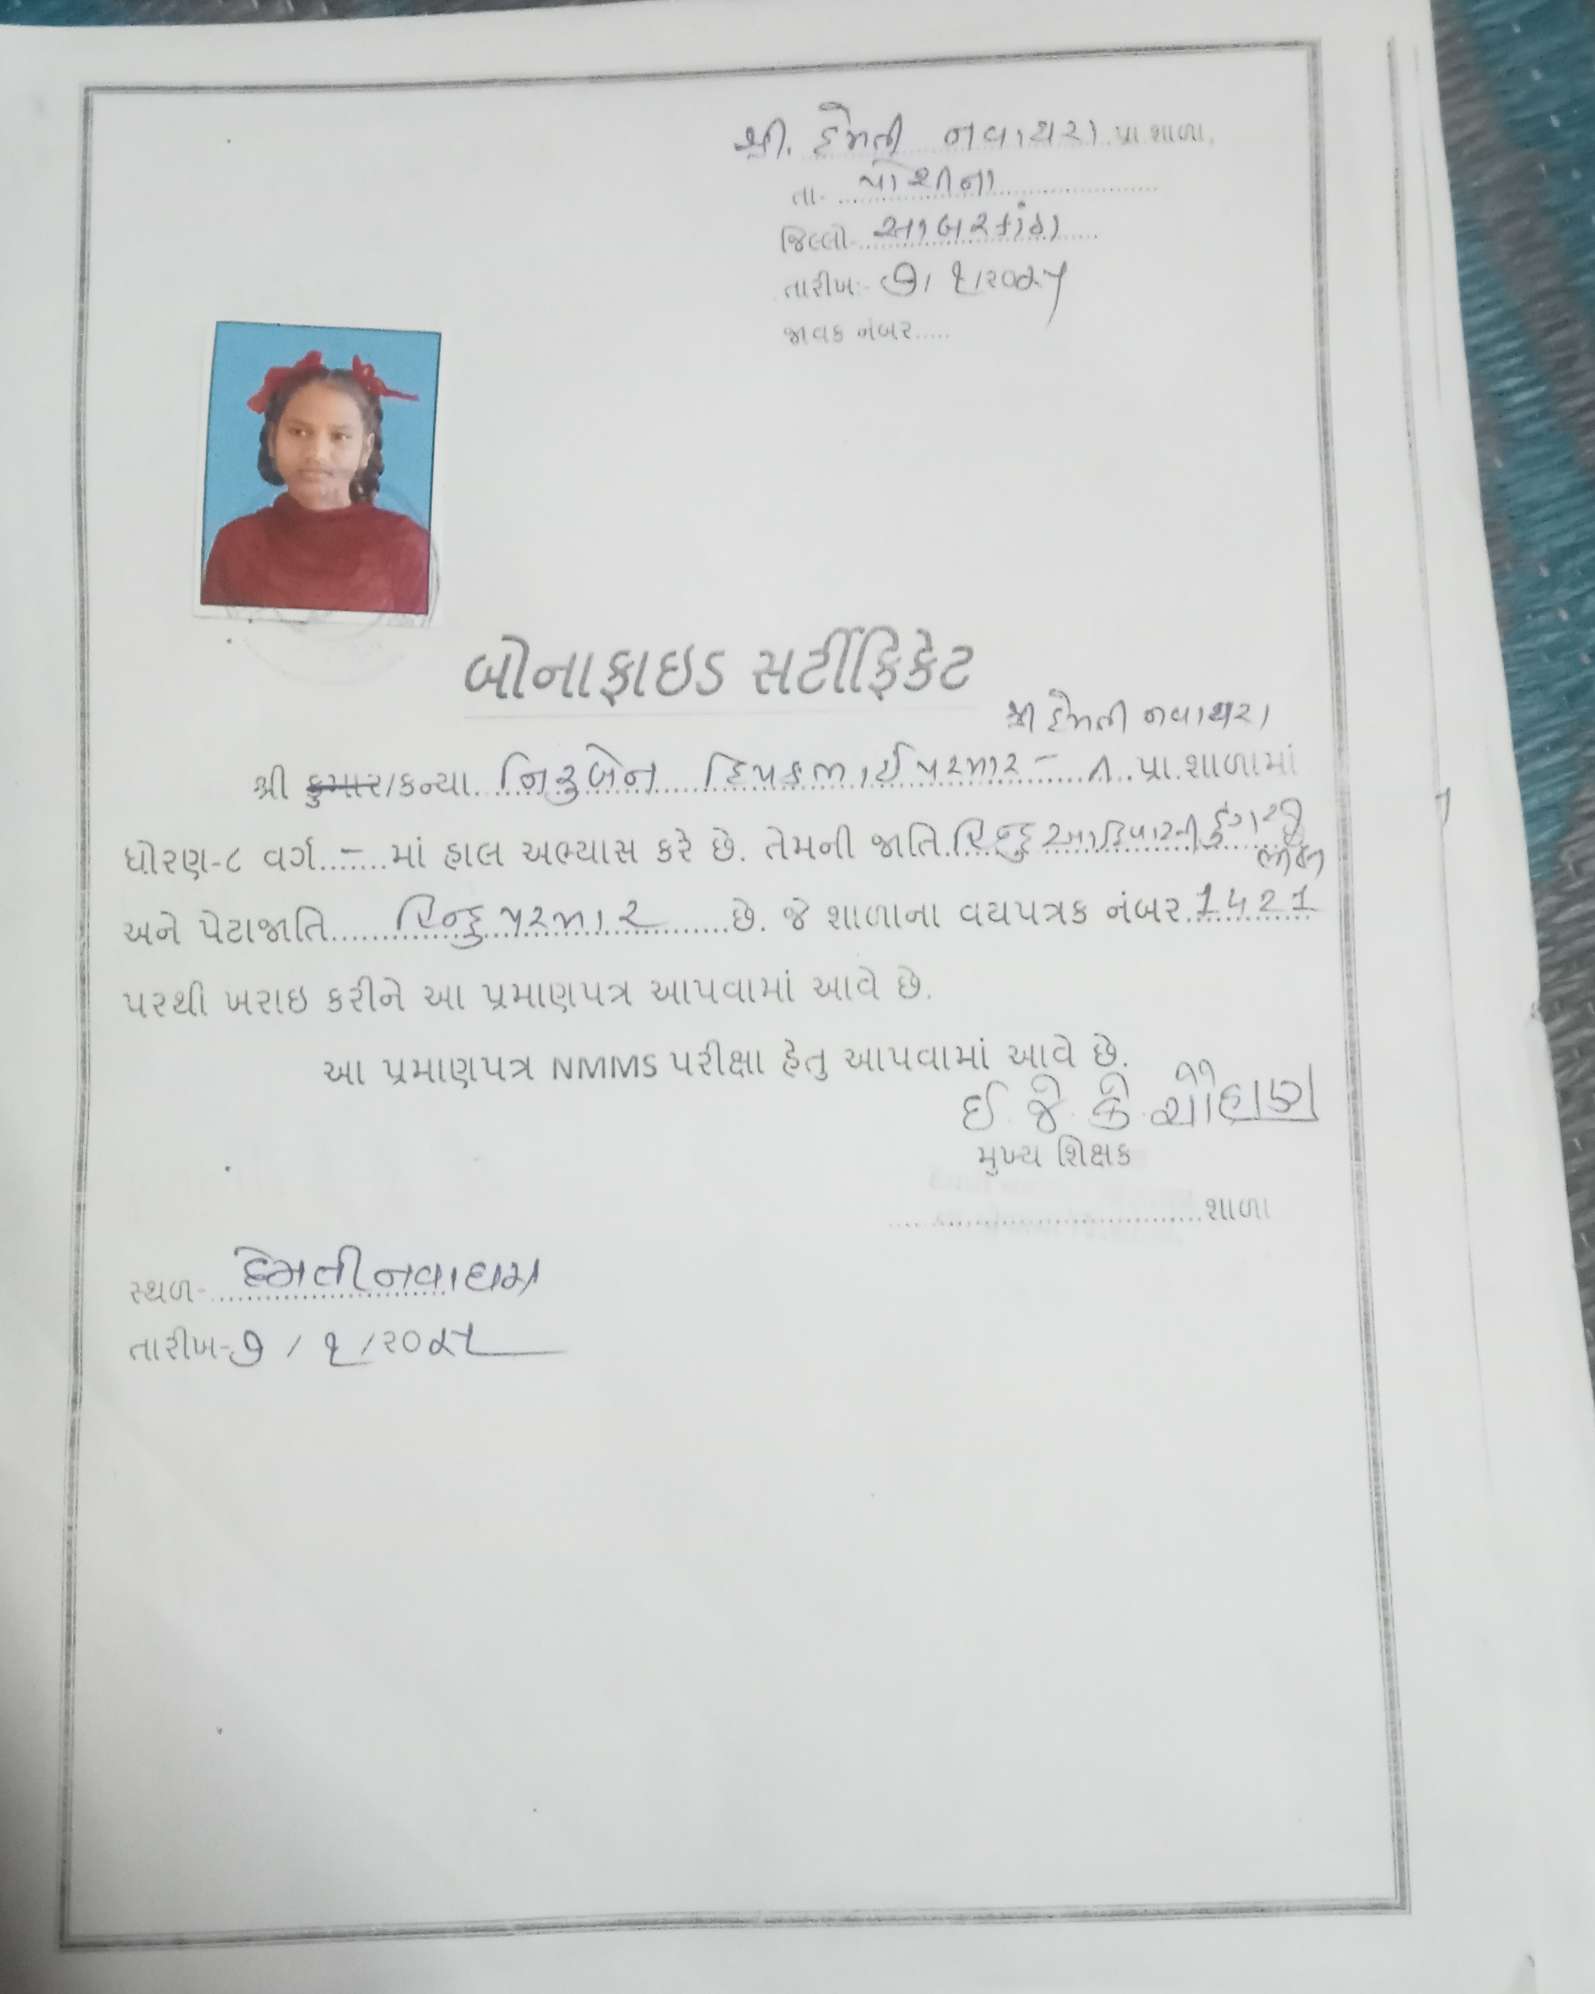 શ્રી. દેમતી નવાઘરા પ્રા શાળા,
તા- પોશીના
જિલ્લો- સાબરકાંઠા
તારીખ:- ૭/ ૧/૨૦૨૫
જાવક નંબર.....
બોનાફાઇડ સર્ટીફિકેટ
શ્રી દેમતી નવાઘરા
શ્રી કુમાર/કન્યા. નિરુબેન દિપકભાઈ પરમાર - પ્રા.શાળામાં
ધોરણ-૮ વર્ગ..-.....માં હાલ અભ્યાસ કરે છે. તેમની જાતિ હિન્દુ આદિવાસી ડુંગરી
અને પેટાજાતિ હિન્દુ પરમાર છે. જે શાળાના વયપત્રક નંબર 1421
પરથી ખરાઇ કરીને આ પ્રમાણપત્ર આપવામાં આવે છે.
આ પ્રમાણપત્ર NMMS પરીક્ષા હેતુ આપવામાં આવે છે.
ઈ. જે. કે. ચૌહાણ
મુખ્ય શિક્ષક
શાળા
સ્થળ- દેમતી નવાઘરા
તારીખ- ૭ / ૧ /૨૦૨૫